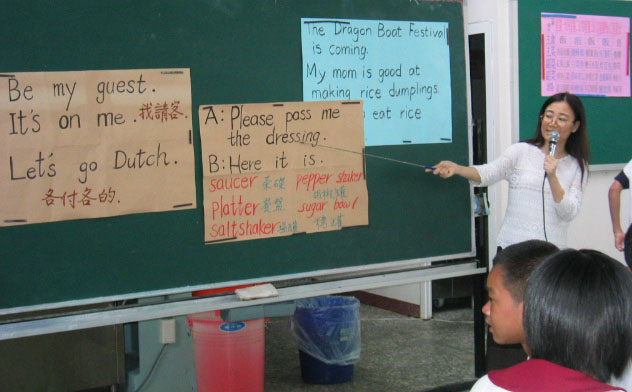 Be my guest.
It's on me. 我請客.
Let's go Dutch.
各付各的.
A: Please pass me
the dressing.
B: Here it is.
saucer 茶碟 pepper shaker
胡椒罐
platter 餐盤 sugar bowl
saltshaker 鹽罐 糖罐
The Dragon Boat Festival
is coming.
My mom is good at
making rice dumplings.
eat rice